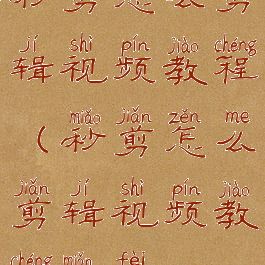 jí shì pín jiào chéng
辑视频教程
miǎo jiǎn zěn me
（秒剪怎么
jiǎn jí shì pín jiào
剪辑视频教
chéng miǎn fèi